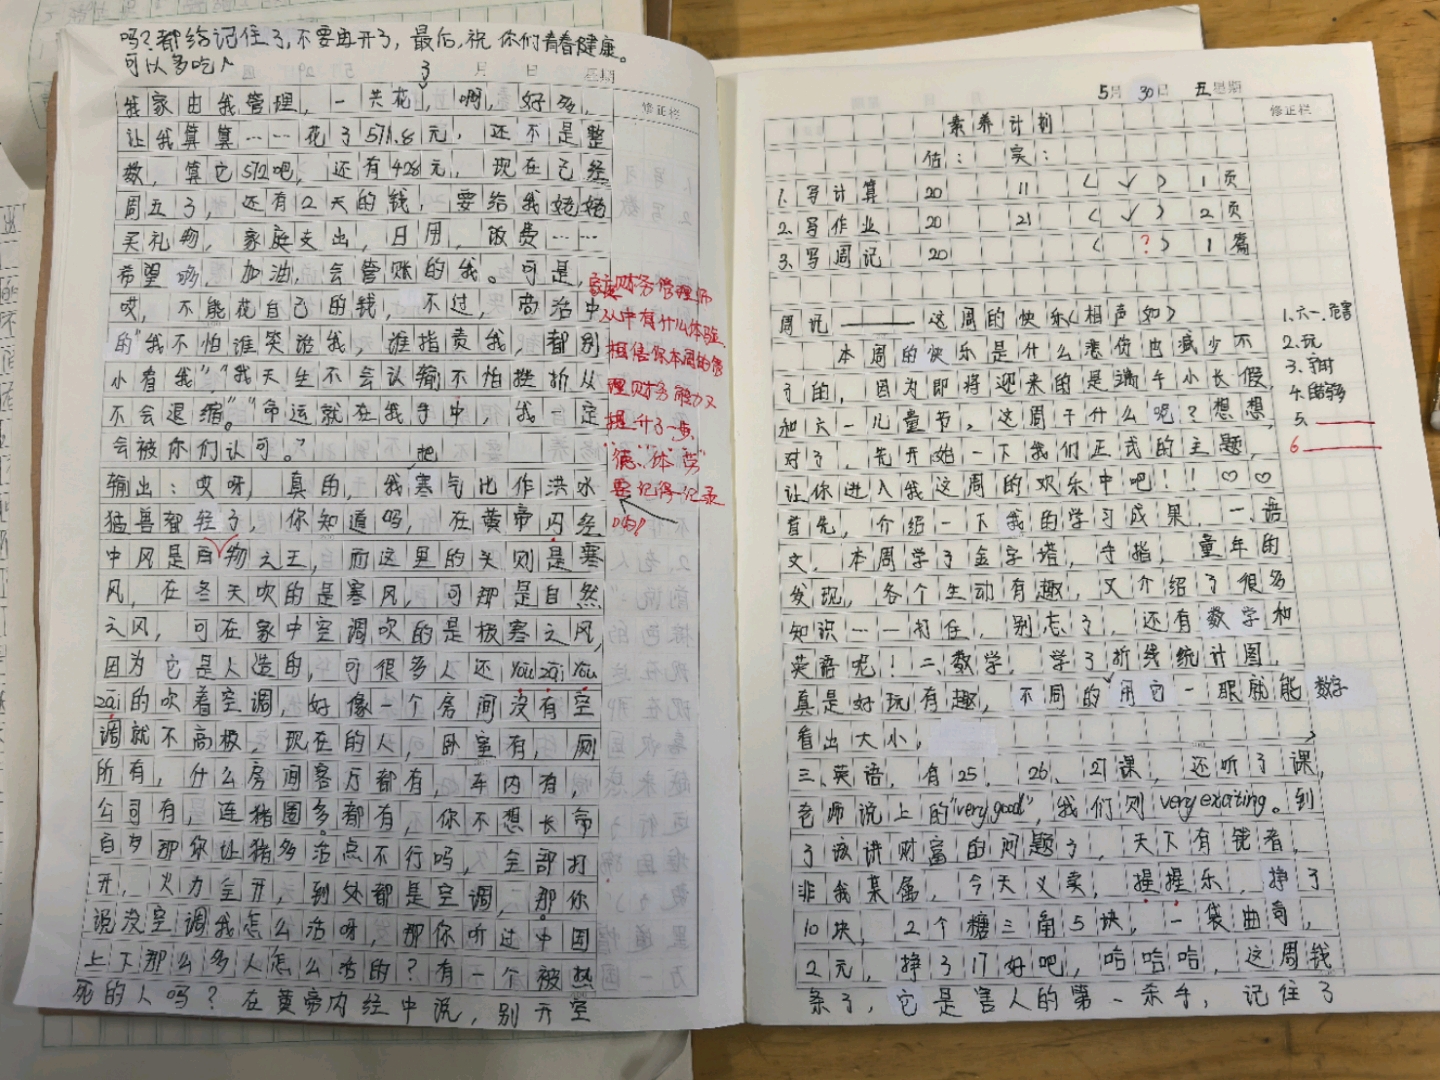 吗？都给记住了，不要再开了，最后，祝你们青春健康。
可以多吃人
3 月 日 星期
修正栏
我家由我管理，一共花，啊，好多，
让我算算……花了571.8元，还不是整
数，算它572吧，还有428元，现在已经
周五了，还有2天的钱，要给我姥姥
买礼物，家庭支出，日用，饭费……
希望够，加油，会管账的我。可是，
哎，不能花自己的钱，不过，尚治中
的“我不怕谁笑话我，谁指责我，都别
小看我”“我天生不会认输不怕挫折从
不会退缩。”“命运就在我手中，我一定
会被你们认可。”
把
输出：哎呀，真的，我寒气比作洪水
猛兽都轻了，你知道吗，在黄帝内经
中风是百物之王，而这里的头则是寒
风，在冬天吹的是寒风，可那是自然
之风，可在家中空调吹的是极寒之风，
因为它是人造的，可很多人还you zai you
zai的吹着空调，好像一个房间没有空
调就不高极，现在的人，卧室有，厕
所有，什么房间客厅都有，车内有，
公司有，连猪圈多都有，你不想长命
百岁那你让猪多活点不行吗，全部打
开，火力全开，到处都是空调，那你
说没空调我怎么活呀，那你听过中国
上下那么多人怎么活的？有一个被热
死的人吗？在黄帝内经中说，别开空
家庭财务管理师
从中有什么体验
相信你本周的管
理财务能力又
提升了一步
“德”“体”“劳”
要记得记录
哟！
5月30日 五星期
修正栏
素养计划
估： 实：
1.写计算 20 11 （√） 1页
2.写作业 20 21 （√） 2页
3.写周记 20 （？） 1篇
周记——这周的快乐（相声如）
本周的快乐是什么悲伤也减少不
了的，因为即将迎来的是端午小长假，
和六一儿童节，这周干什么呢？想想，
对了，先开始一下我们正式的主题，
让你进入我这周的欢乐中吧！！♡♡
首先，介绍一下我的学习成果，一、语
文，本周学了金字塔，手指，童年的
发现，各个生动有趣，又介绍了很多
知识——打住，别忘了，还有数学和
英语呢！二、数学，学了折线统计图，
真是好玩有趣，不同的用它一眼就能 数字
看出大小，
三、英语，有25、26、27课，还听了课，
老师说上的“very good”，我们则very exciting。到
了该讲财富的问题了，天下有钱者，
非我某属，今天义卖，捏捏乐，挣了
10块，2个糖三角5块，一袋曲奇，
2元，挣了17好吧，哈哈哈，这周钱
条了，它是害人的第一杀手，记住了
1.六一、危害
2.玩
3.
4.
5.
6